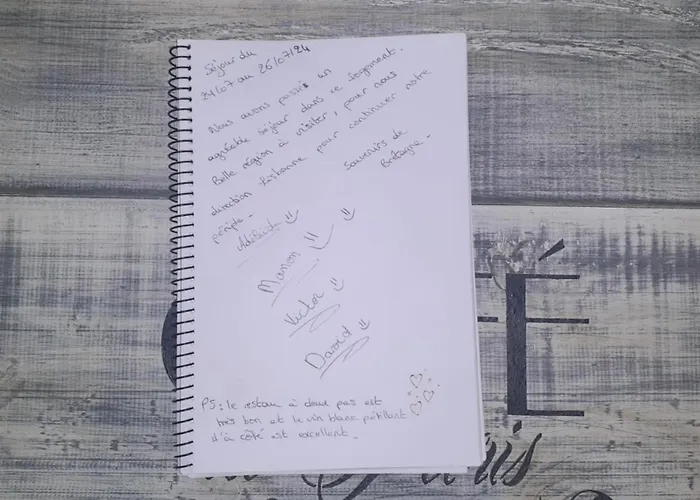 Séjour du
24/07 au 26/07/24
Nous avons passés un
agréable séjour dans ce logement.
Belle région à visiter, pour nous
direction Bretonne pour continuer notre
périple -
Souvenirs de
Bretagne -
Manon
Victor
David
PS : le restau à deux pas est
très bon et le vin blanc pétillant
d'à côté est excellent -
É